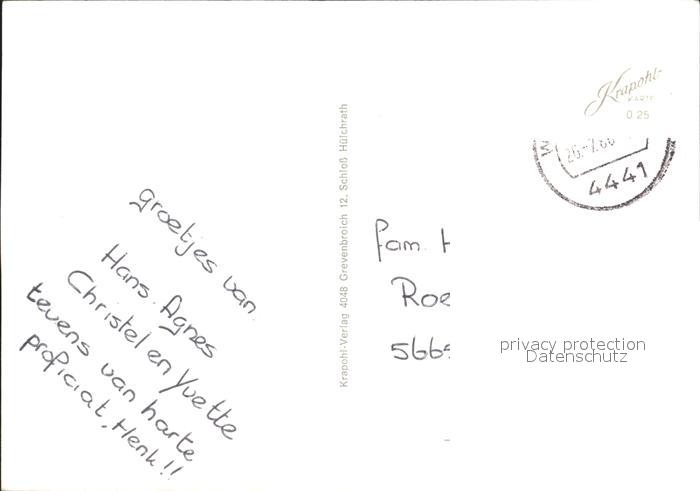 groetjes van
Hans, Agnes
Christel en Yvette
tevens van harte
proficiat, Henk!!
Krapohl-Verlag 4048 Grevenbroich 12, Schloß Hülchrath
Krapohl-
KARTE
0 25
4441
fam. H
Roe
5665
privacy protection
Datenschutz